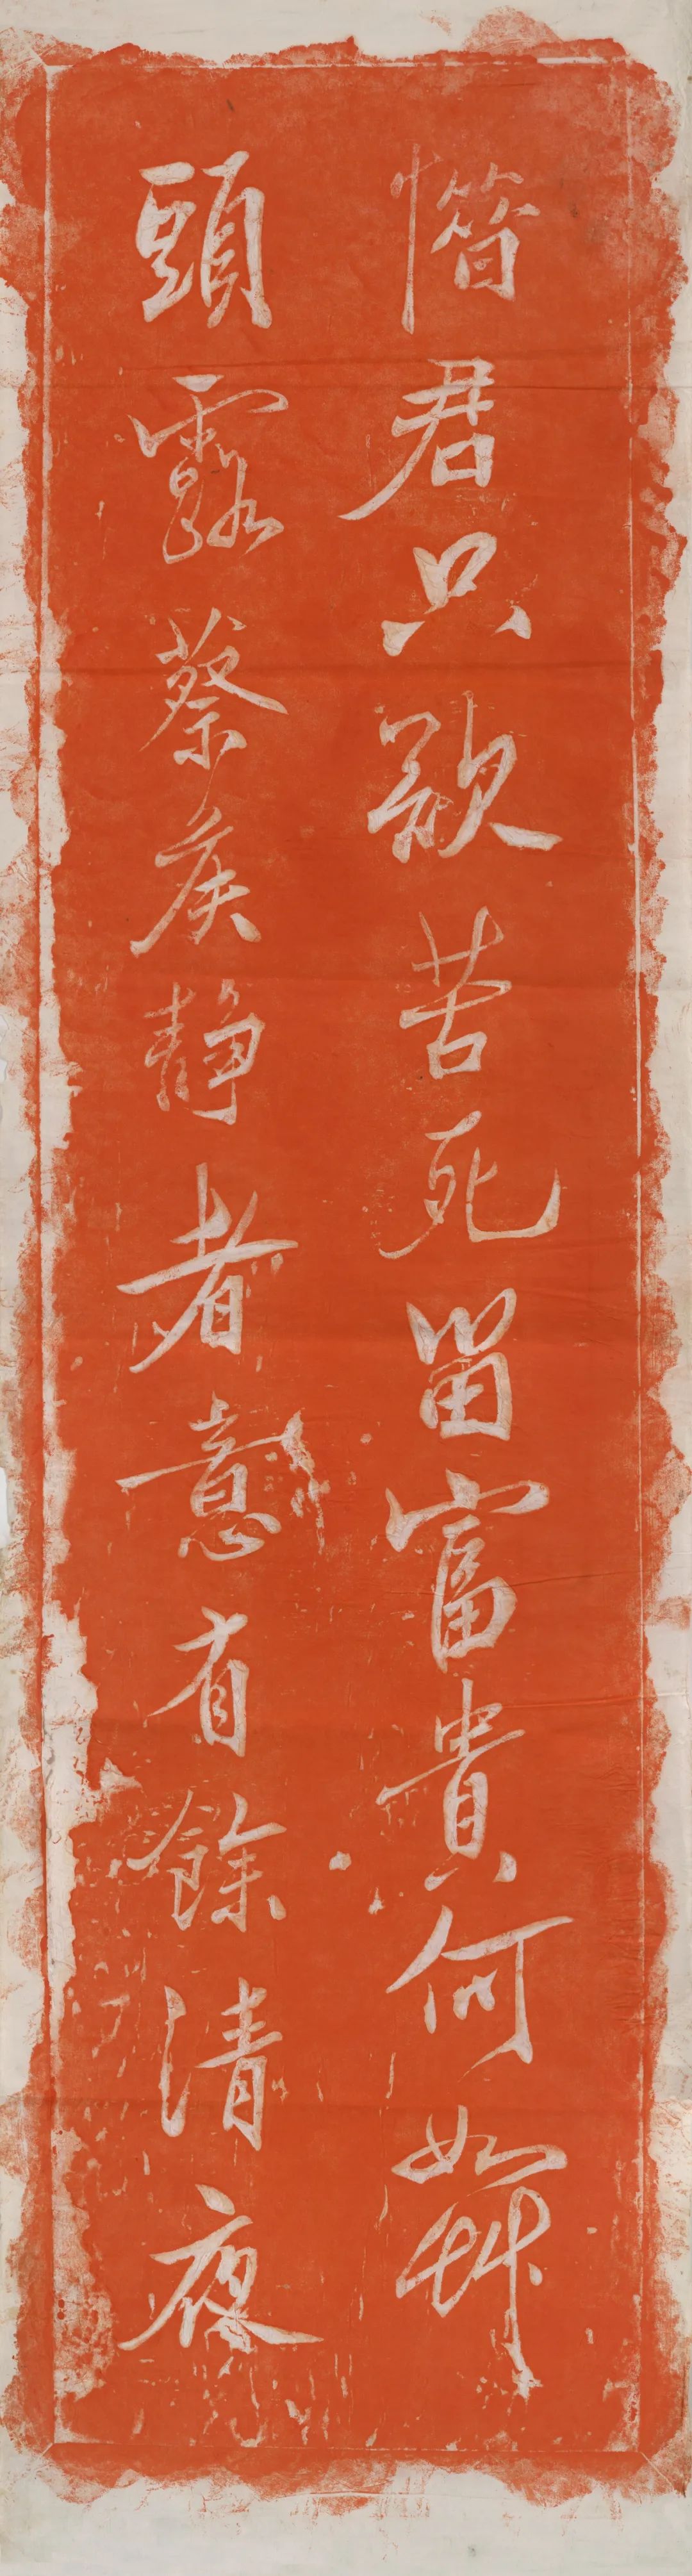 惜君只欲苦死留富貴何如艸
頭露蔡侯靜者意有餘清夜